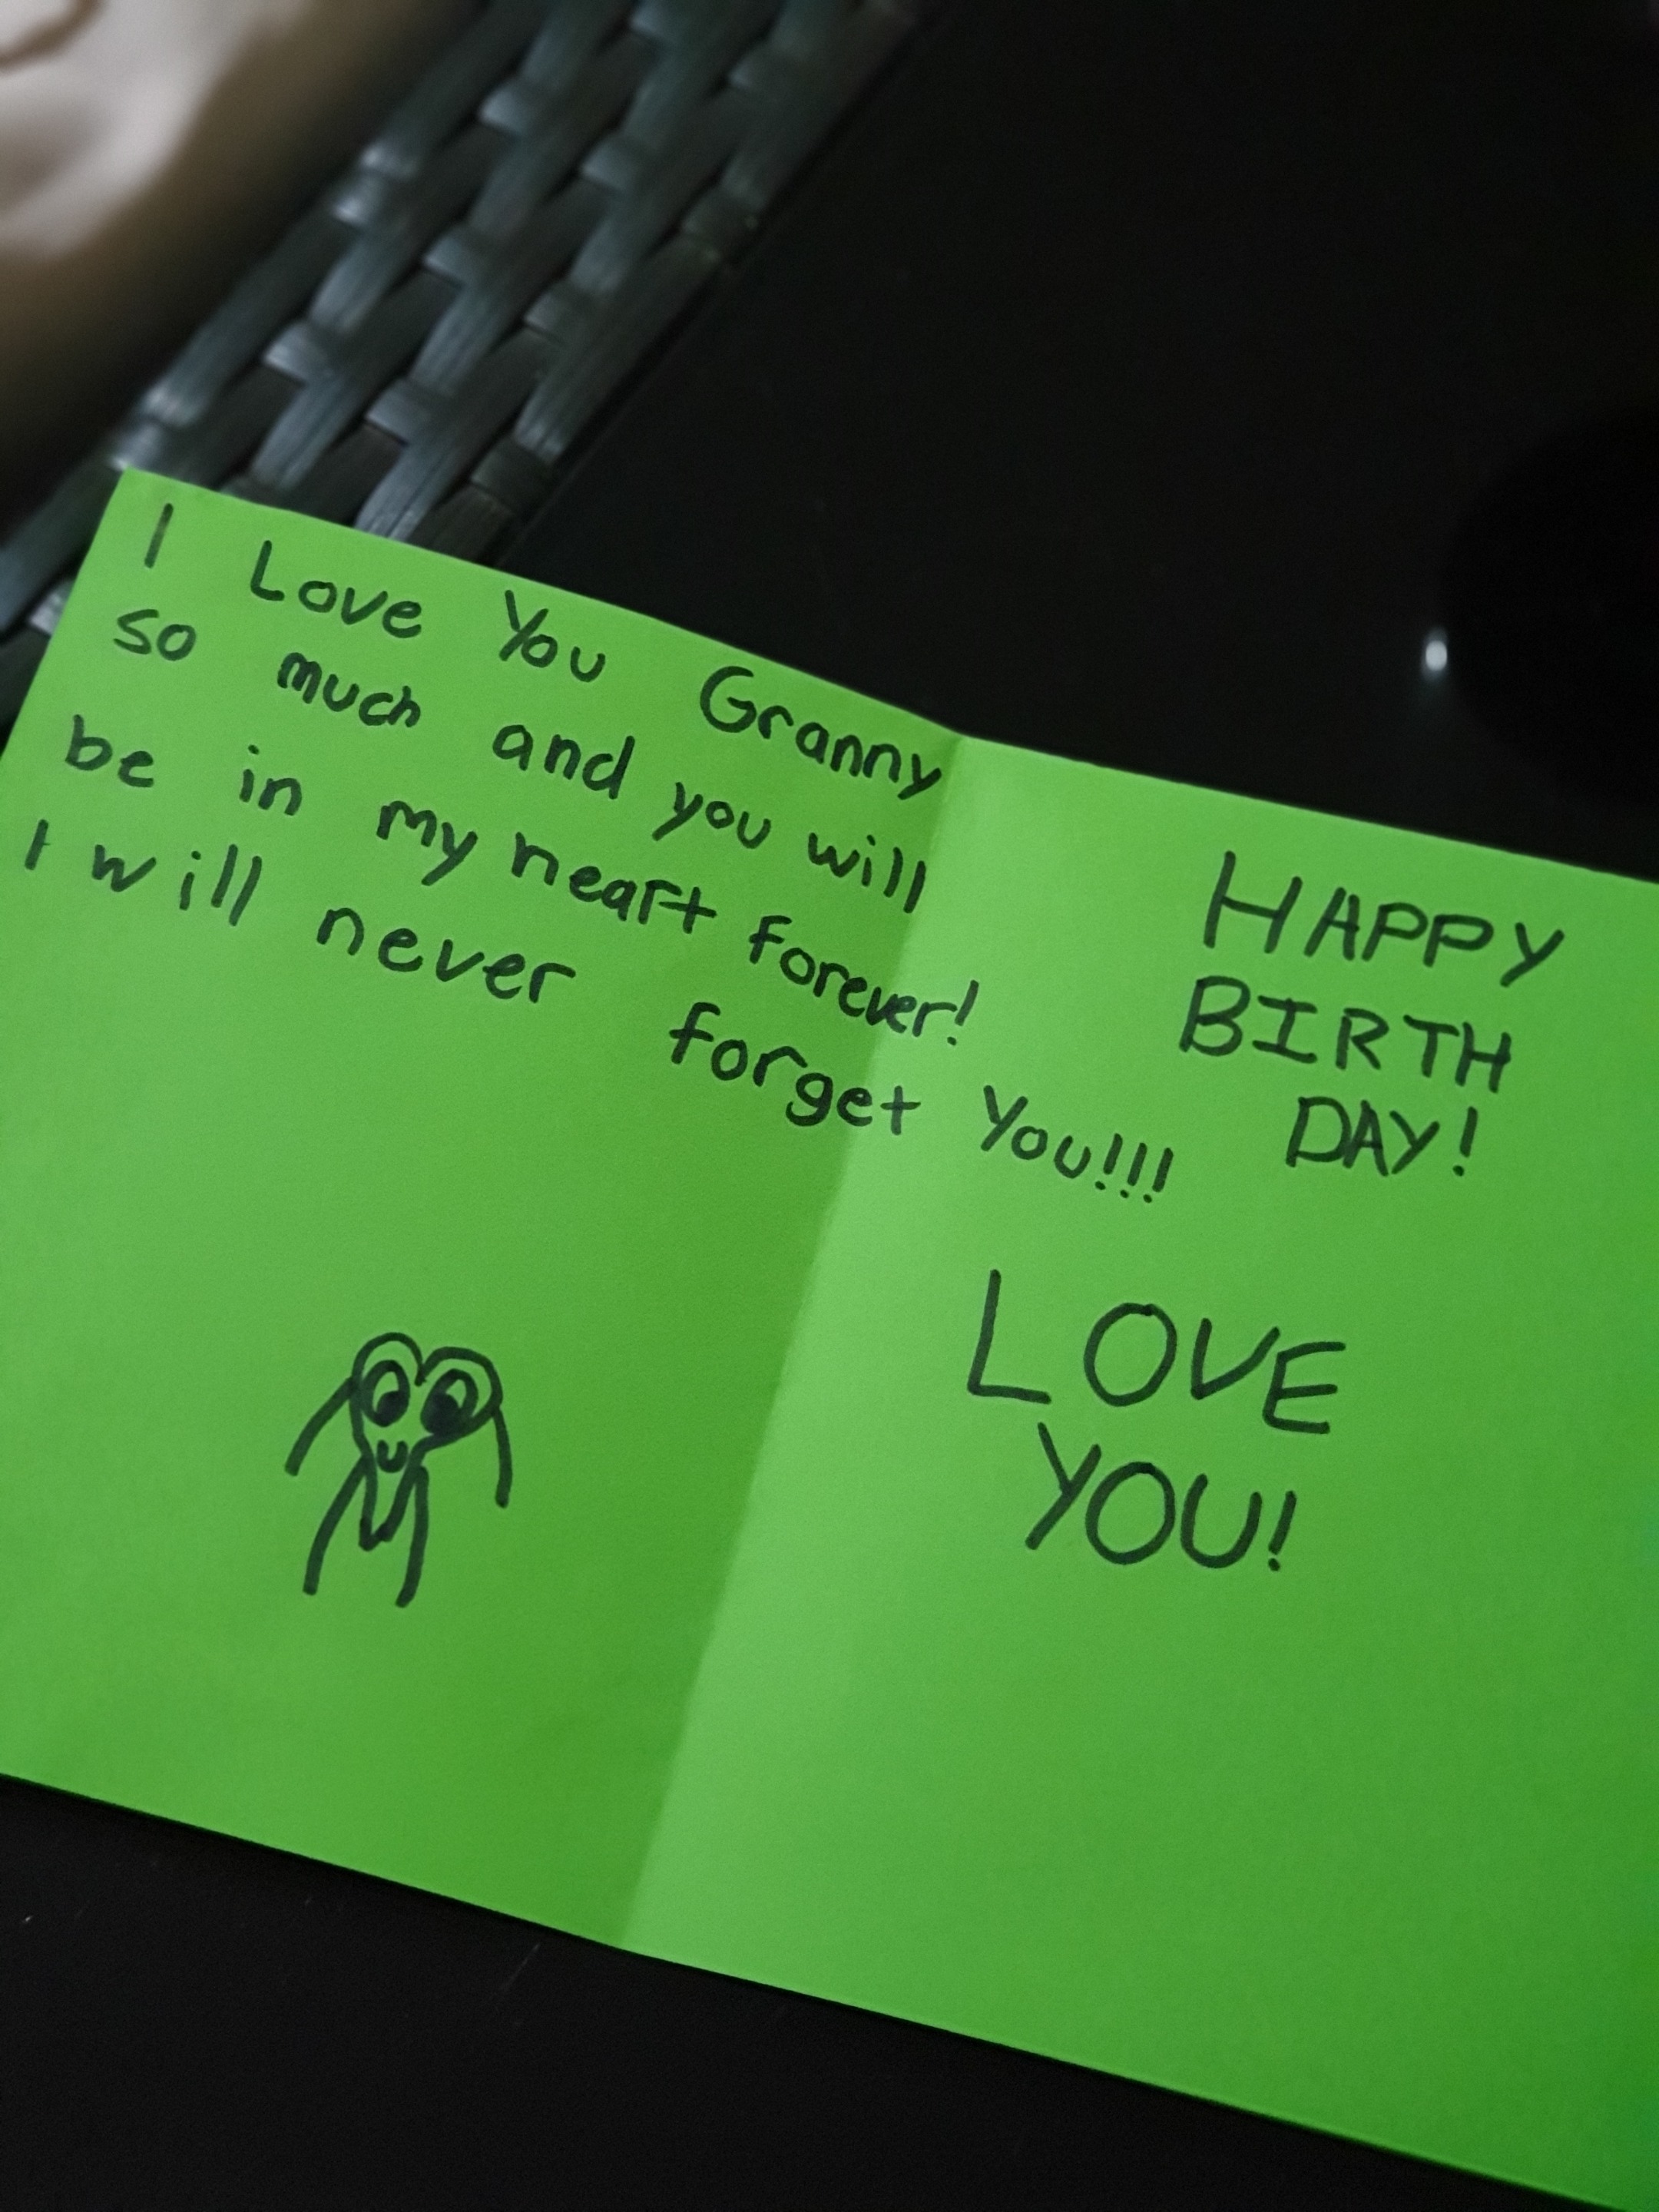 I Love You Granny
so much and you will
be in my heart forever!
I will never forget You!!!
HAPPY
BIRTH
DAY!
LOVE
YOU!